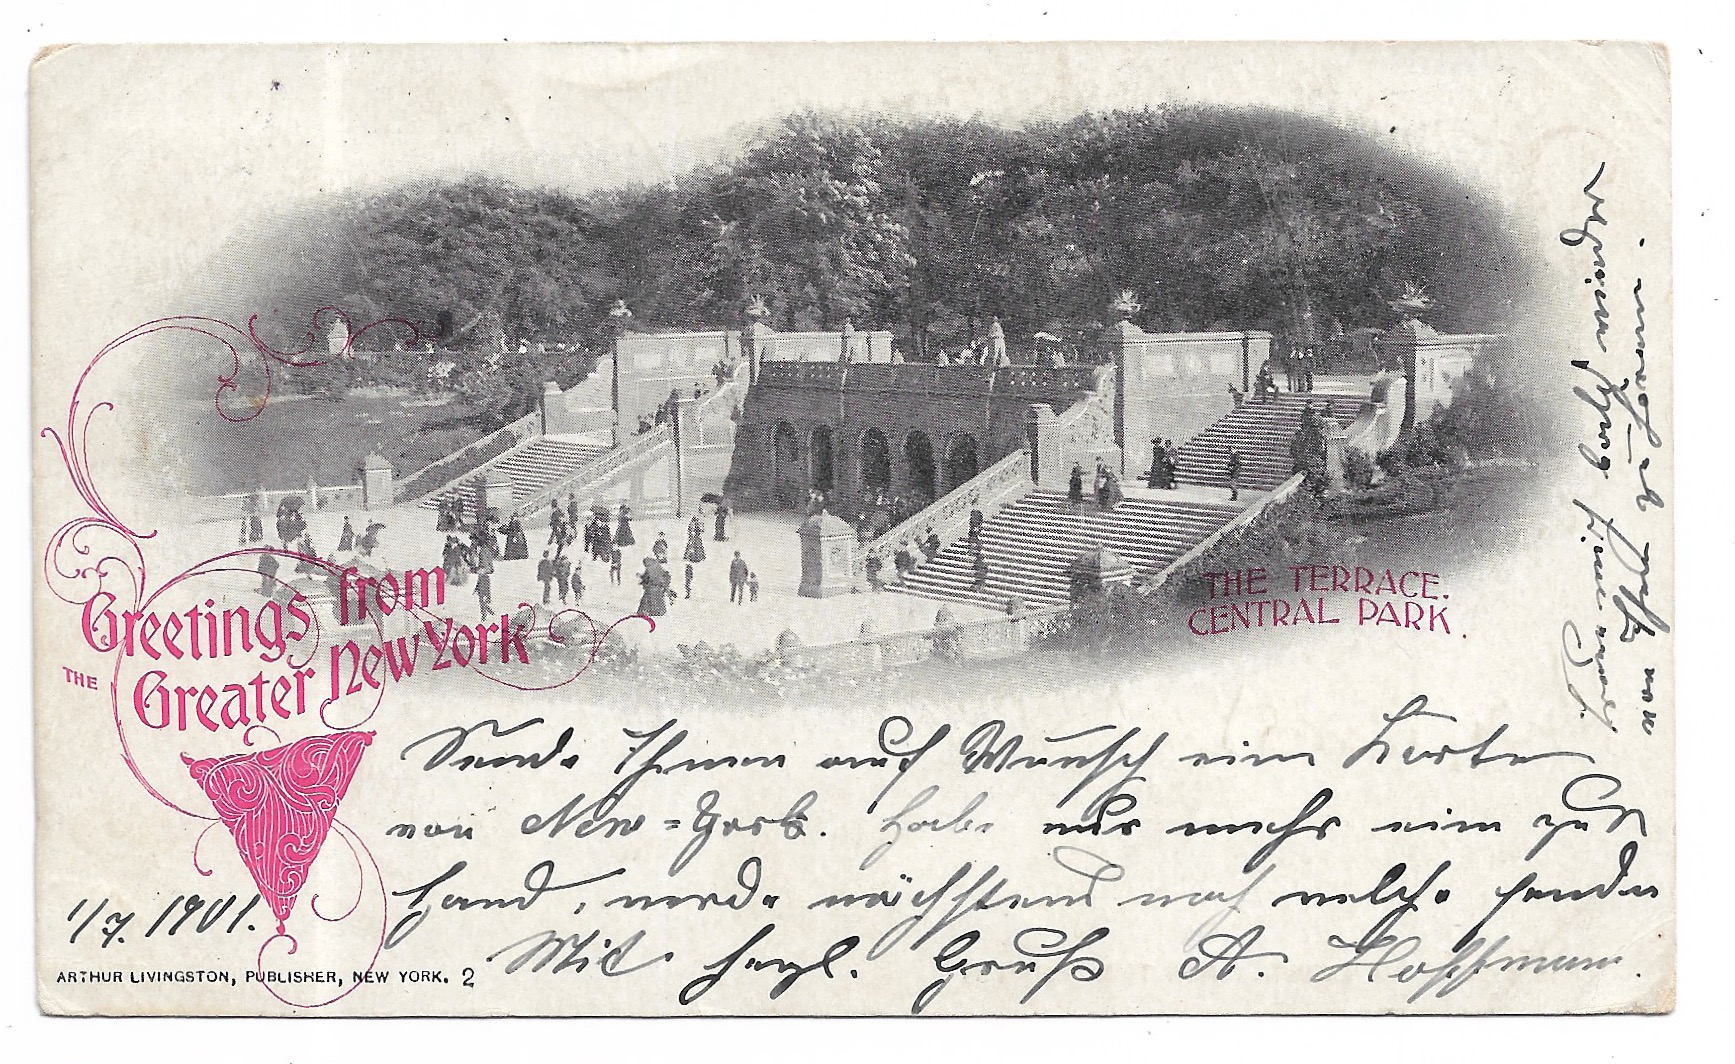 Greetings from
THE Greater New York
THE TERRACE.
CENTRAL PARK.
Sende Ihnen auf Wunsch eine Karte
von New-York. Habe nur mehr eine zur
Hand, werde nächstens noch welche senden
Mit herzl. Gruß A. Hoffmann.
1/7. 1901.
ARTHUR LIVINGSTON, PUBLISHER, NEW YORK. 2